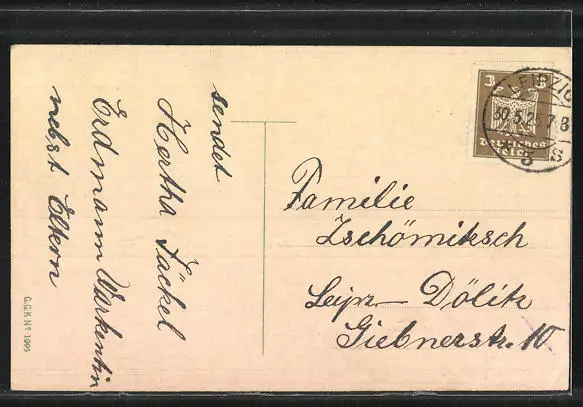 sendet
Hertha Jäckel
Erdmann Warkentin
nebst Eltern
G.G.K. Nº 1095
3 3
Deutsches
Reich
LEIPZIG
30.5.25.7-8
3 S
Familie
Zschömitzsch
Leipz – Dölitz
Giebnerstr. 10